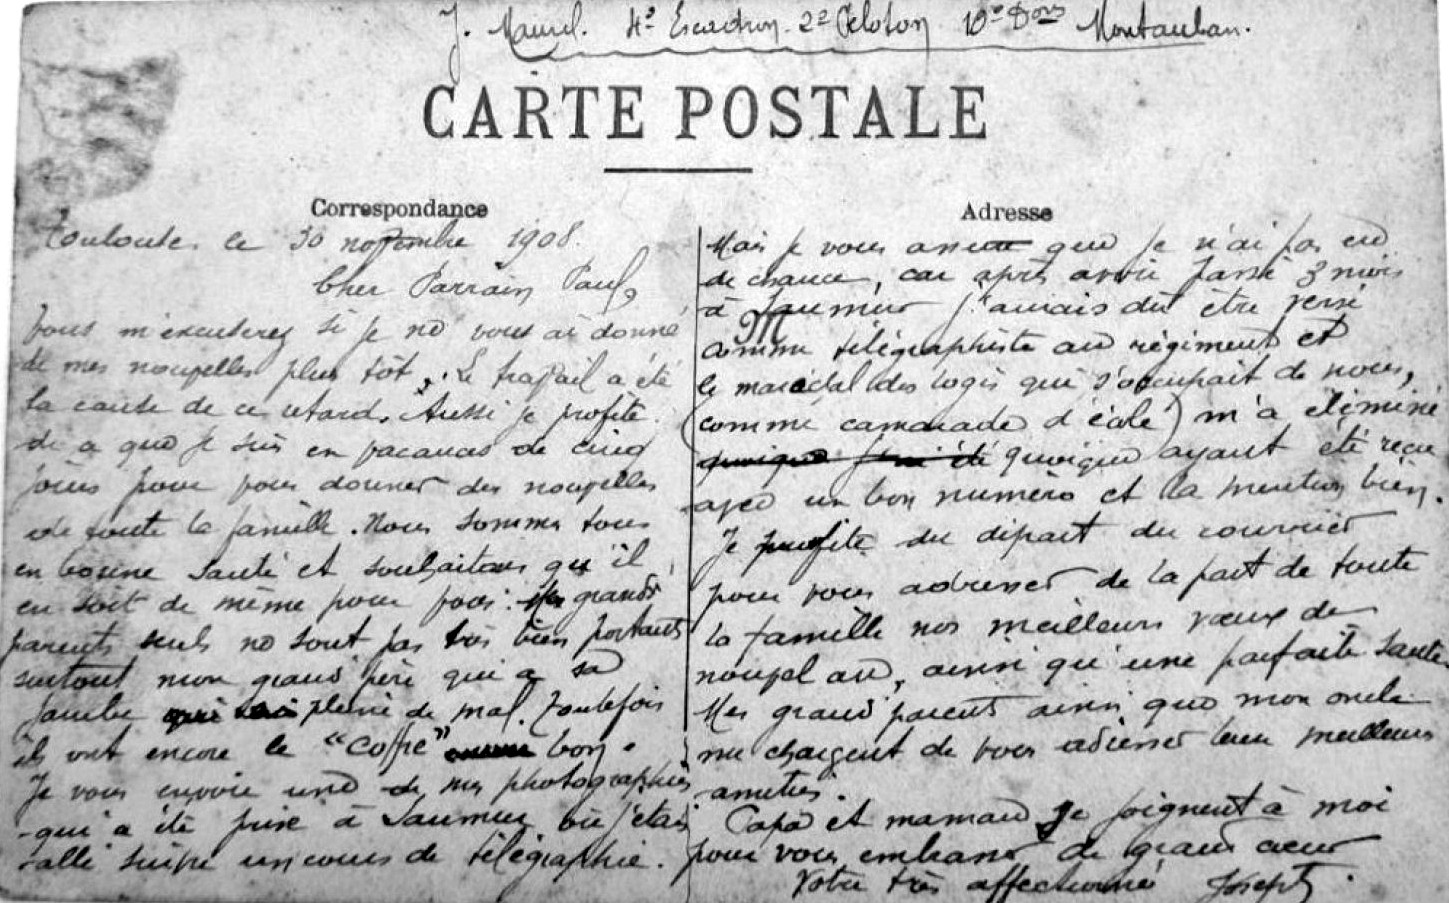 J. Maurel. 4e Escadron. 2e Peloton 10e Dons Montauban.
CARTE POSTALE
Correspondance
Toulouse le 30 novembre 1908.
Cher Parrain Paul,
Vous m'excuserez si je ne vous ai donné
de mes nouvelles plus tôt. Le travail a été
la cause de ce retard. Aussi je profite
de ce que je suis en vacances de cinq
jours pour vous donner des nouvelles
de toute la famille. Nous sommes tous
en bonne santé et souhaitons qu'il
en soit de même pour vous. Mes grands
parents seuls ne sont pas très bien portants
surtout mon grand père qui a sa
jambe pleine de mal. Toutefois
ils ont encore le "coffre" bon.
Je vous envoie une de mes photographies
qui a été prise à Saumur où j'étais
allé suivre un cours de télégraphie.
Adresse
Mais je vous assure que je n'ai pas eu
de chance, car après avoir passé 3 mois
à Saumur j'aurais dû être versé
comme télégraphiste au régiment et
le maréchal des logis qui s'occupait de nous,
(comme camarade d'école) m'a éliminé
quoique ayant été reçu
avec un bon numéro et la mention bien.
Je profite du départ du courrier
pour vous adresser de la part de toute
la famille nos meilleurs vœux de
nouvel an, ainsi qu'une parfaite santé
Mes grand parents ainsi que mon oncle
me chargent de vous adresser leur meilleurs
amitiés.
Papa et maman se joignent à moi
pour vous embrasser de grand cœur
Votre très affectionné Joseph.